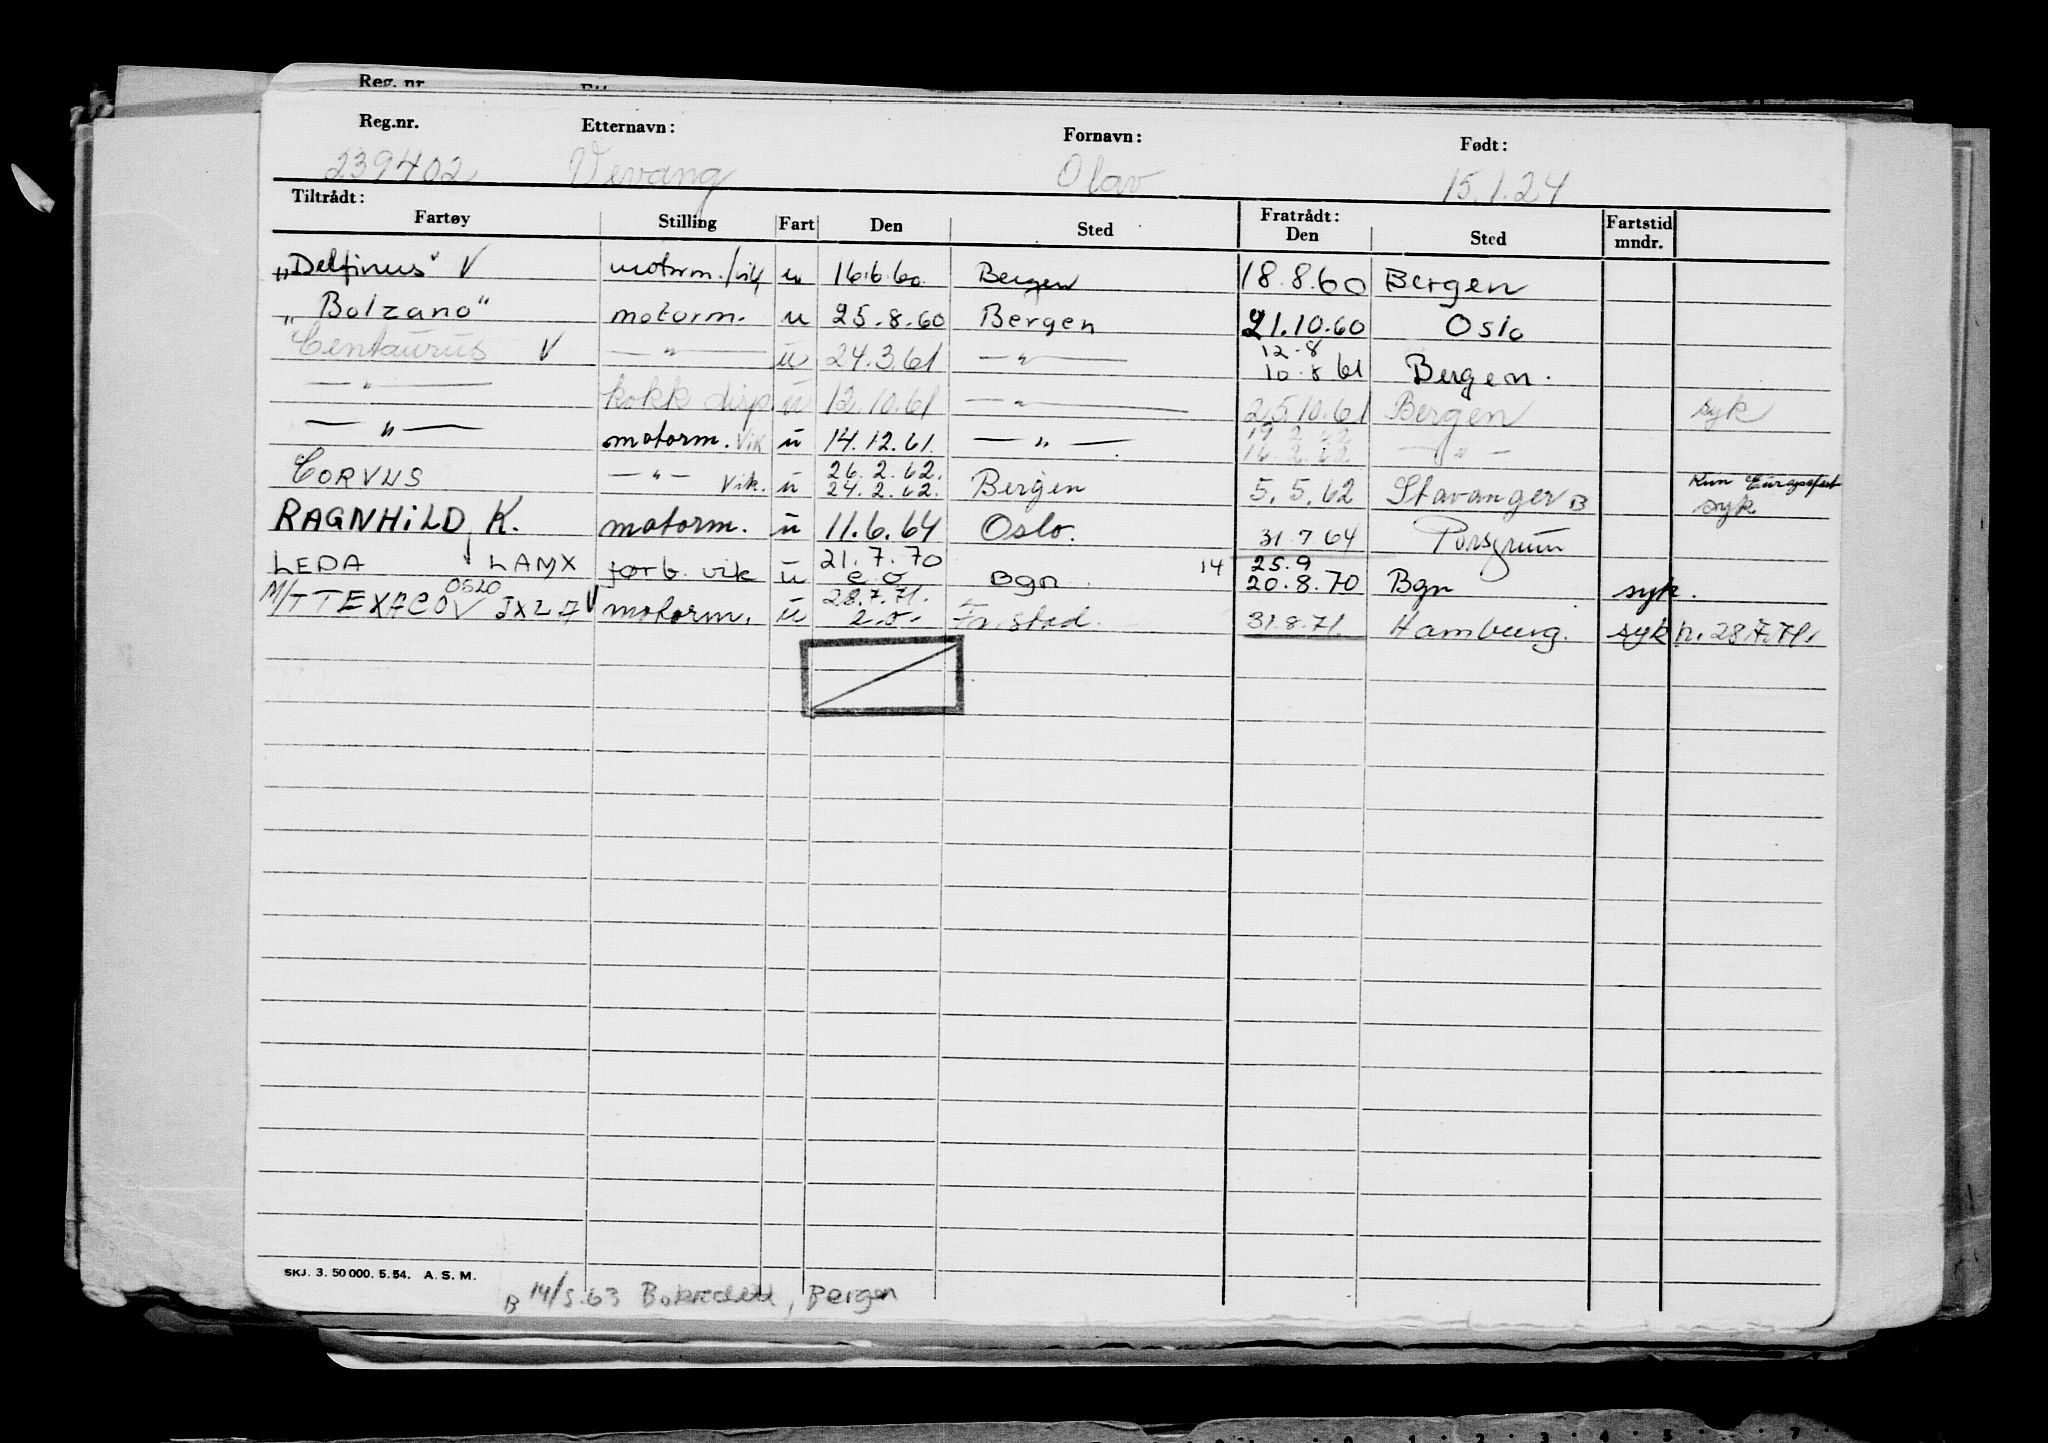 Reg. nr
Reg.nr. Etternavn: Fornavn: Født:
239402 Vevang Olav 15.1.24
Tiltrådt: Fratrådt:
Fartøy Stilling Fart Den Sted Den Sted Fartstid mndr.
"Delfinus" V motorm./vik u 16.6.60 Bergen 18.8.60 Bergen
"Bolzano" motorm. u 25.8.60 Bergen 21.10.60 Oslo
Centaurus V — " — u 24.3.61 — " — 12.8 10.8 61 Bergen.
— " — kokk disp u 12.10.61 — " — 25.10.61 Bergen syk
— " — motorm. vik u 14.12.61. — " — 19.2.62 16.2.62 — " —
CORVUS — " — vik. u 26.2.62. 24.2.62. Bergen 5.5.62 Stavanger B Kun Europafart syk
RAGNHILD K. motorm. u 11.6.64 Oslo. 31.7 64 Porsgrunn
LEDA LAMX førb. vik u 21.7.70 e.o Bgn 14 25.9 20.8.70 Bgn syk.
M/T TEXACO OSLO JXLA V motorm. u 28.7.71. Fr.stad. 31.8.71. Hamburg. syk p. 28.7.71.
SKJ. 3. 50 000. 5. 54. A. S. M.
B 14/5.63 , Bergen
0 1 2 3 4 5 7